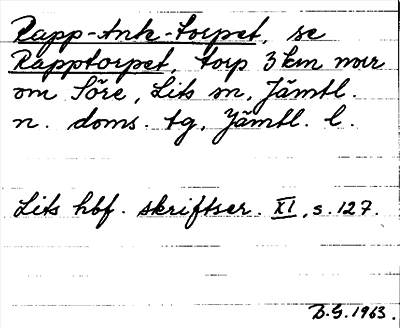 Rapp-Ante-torpet, se
Rapptorpet, torp 3 km norr
om Söre, Lits sn, Jämtl.
n. doms. tg, Jämtl. l.
Lits hbf. skriftser. XI, s. 127.
D.G. 1963.